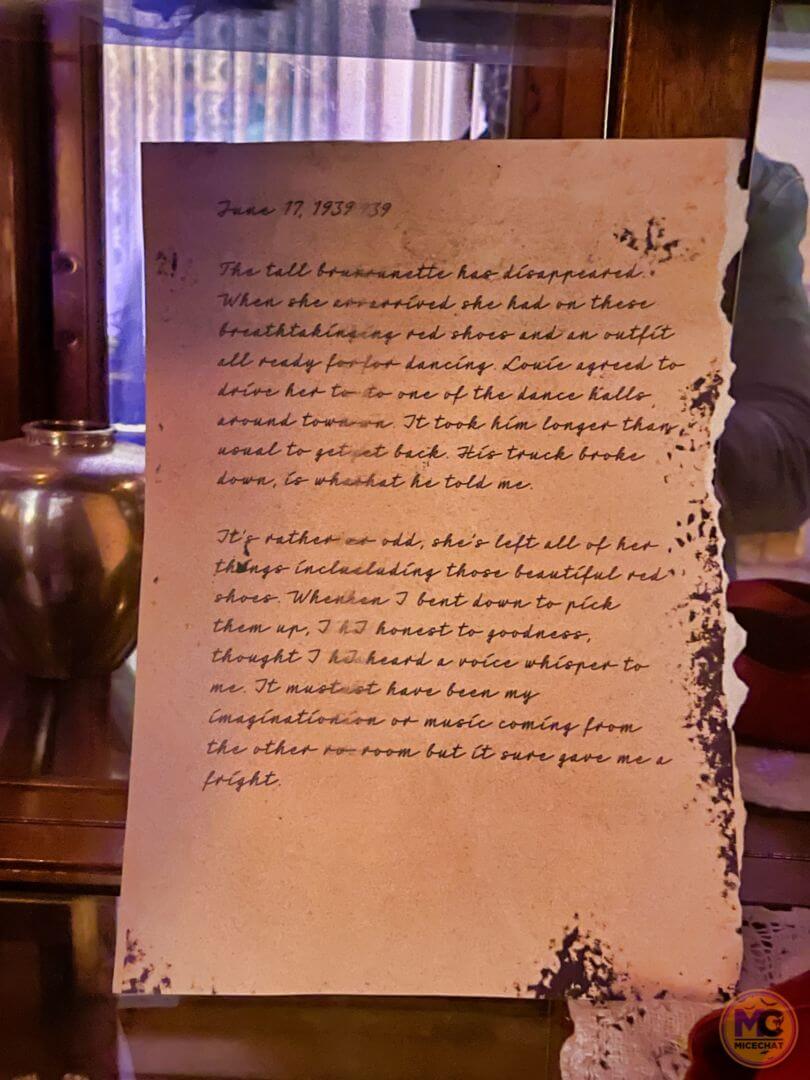 June 17, 1939
The tall brunette has disappeared.
When she arrived she had on these
breathtaking red shoes and an outfit
all ready for dancing. Louie agreed to
drive her to one of the dance halls
around town. It took him longer than
usual to get back. His truck broke
down, is what he told me.
It's rather odd, she's left all of her
things including those beautiful red
shoes. When I bent down to pick
them up, I honest to goodness,
thought I heard a voice whisper to
me. It must have been my
imagination or music coming from
the other room but it sure gave me a
fright.
MC
MICECHAT